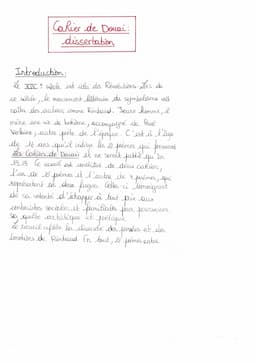 Cahier de Douai :
dissertation
Introduction :
Le XIXe siècle est celui des Révolutions. Lors de
ce siècle, le mouvement littéraire du symbolisme voit
naître des auteurs comme Rimbaud. Jeune homme, il
mène une vie de bohème, accompagné de Paul
Verlaine, autre poète de l'époque. C'est à l'âge
de 16 ans qu'il rédige les 22 poèmes qui forment
Les Cahiers de Douai et ne seront publié qu'en
Le recueil est constitué de deux cahiers,
l'un de 15 poèmes et l'autre de 7 poèmes, qui
représentent ses deux fugues. Celles-ci témoignent
de sa volonté d'échapper à tout prix aux
contraintes sociales et familiales pour poursuivre
sa quête artistique et poétique.
Le recueil reflète la diversité des pensées et des
émotions de Rimbaud. En tout, 22 poèmes